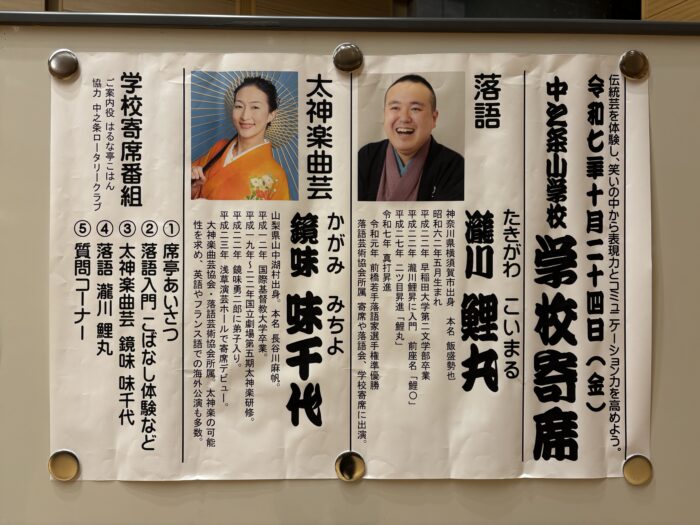 伝統芸を体験し、笑いの中から表現力とコミュニケーション力を高めよう。
令和七年十月二十四日(金)
中之条小学校 学校寄席
落語
たきがわ こいまる
瀧川 鯉丸
神奈川県横須賀市出身 本名 飯盛勢也
昭和六二年五月生まれ
平成二二年 早稲田大学第二文学部卒業
平成二二年 瀧川鯉昇に入門 前座名「鯉〇」
平成二七年 二ツ目昇進「鯉丸」
令和七年 真打昇進
令和元年 前橋若手落語家選手権準優勝
落語芸術協会所属 寄席や落語会、学校寄席に出演。
太神楽曲芸
かがみ みちよ
鏡味 味千代
山梨県山中湖村出身。本名 長谷川麻帆。
平成一二年 国際基督教大学卒業。
平成一九年~二二年国立劇場第五期太神楽研修。
平成二二年 鏡味勇二郎に弟子入り。
平成二三年 浅草演芸ホールで寄席デビュー。
太神楽曲芸協会・落語芸術協会所属。太神楽の可能
性を求め、英語やフランス語での海外公演も多数。
学校寄席番組
ご案内役 はるな亭ごはん
協力 中之条ロータリークラブ
① 席亭あいさつ
② 落語入門 こばなし体験など
③ 太神楽曲芸 鏡味 味千代
④ 落語 瀧川 鯉丸
⑤ 質問コーナー